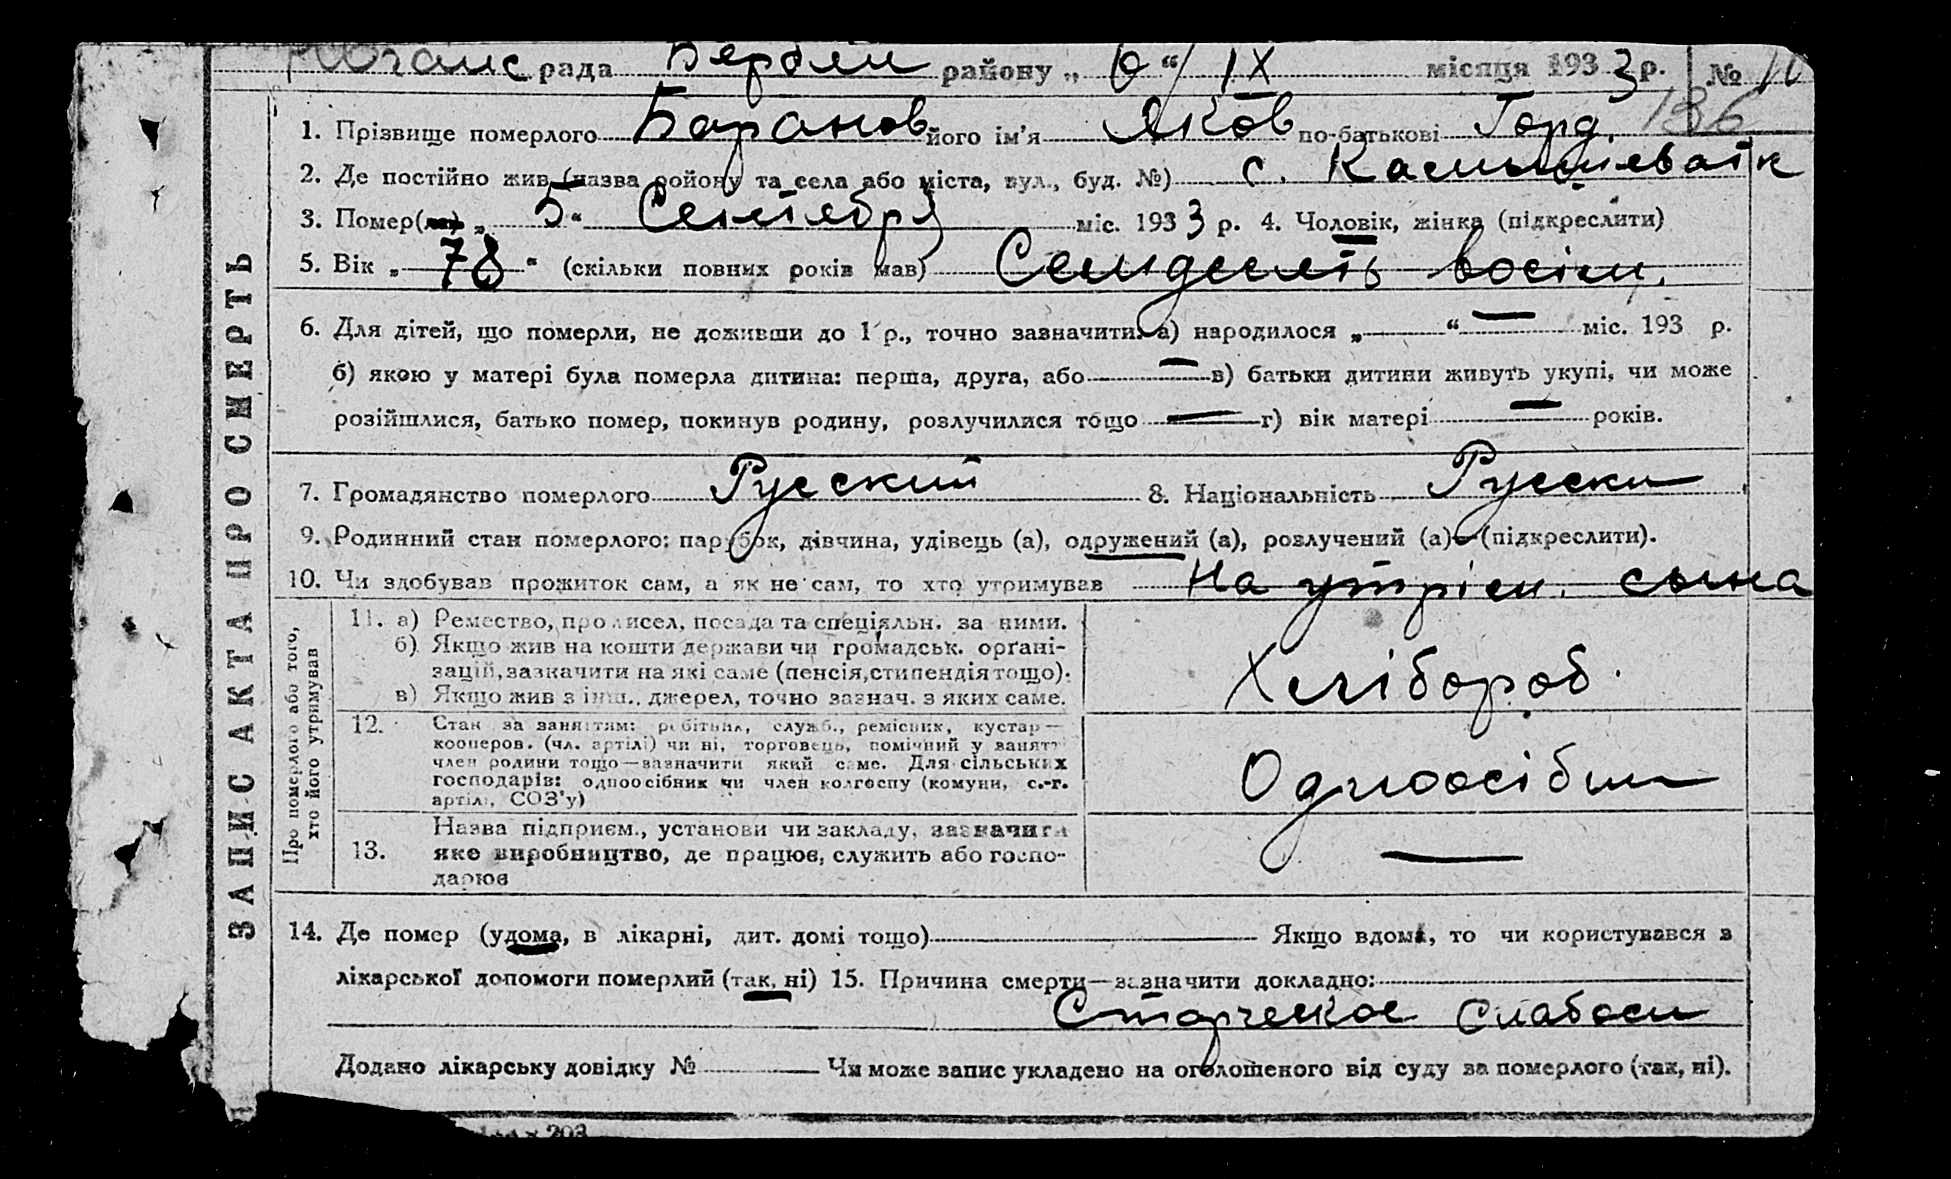 рада Бердян району „ 6 “ IX місяця 1933 р. №
136
1. Прізвище померлого Баранов його ім'я Яков по-батькові Горд.
2. Де постійно жив (назва району та села або міста, вул., буд. №) с. Камышеватк
3. Помер(ла) „ 5 “ Сентебря міс. 1933 р. 4. Чоловік, жінка (підкреслити)
5. Вік „ 78 “ (скільки повних років мав) Семдесять восім.
6. Для дітей, що померли, не доживши до 1 р., точно зазначити: а) народилося „ — “ — міс. 193 р.
б) якою у матері була померла дитина: перша, друга, або — в) батьки дитини живуть укупі, чи може
розійшлися, батько помер, покинув родину, розлучилися тощо — г) вік матері — років.
7. Громадянство померлого Русский 8. Національність Русски
9. Родинний стан померлого: парубок, дівчина, удівець (а), одружений (а), розлучений (а) — (підкреслити).
10. Чи здобував прожиток сам, а як не сам, то хто утримував на утрім. сына
ЗАПИС АКТА ПРО СМЕРТЬ
Про померлого або того,
хто його утримував
11. а) Ремество, промисел, посада та спеціяльн. за ними.
б) Якщо жив на кошти держави чи громадськ. орґані-
зацій, зазначити на які саме (пенсія, стипендія тощо).
в) Якщо жив з інш. джерел, точно зазнач. з яких саме.
Хлібороб.
12. Стан за заняттям: робітник, служб., ремісник, кустар—
кооперов. (чл. артілі) чи ні, торговець, помічний у занятті
член родини тощо—зазначити який саме. Для сільських
господарів: одноосібник чи член колгоспу (комуни, с.-г.
артілі, СОЗ'у)
Одноосібни
13. Назва підприєм., установи чи закладу, зазначити
яке виробництво, де працює, служить або госпо-
дарює —
14. Де помер (удома, в лікарні, дит. домі тощо) Якщо вдома, то чи користувався з
лікарської допомоги померлий (так, ні) 15. Причина смерти—зазначити докладно:
Старческое слабости
Додано лікарську довідку № Чи може запис укладено на оголошеного від суду за померлого (так, ні).
203